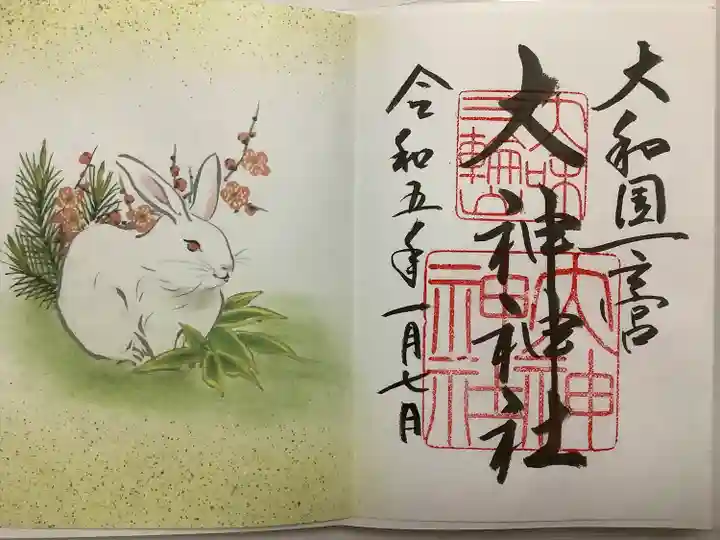 大和国一之宮
大神神社
令和五年一月七日
三輪山
大神
神社